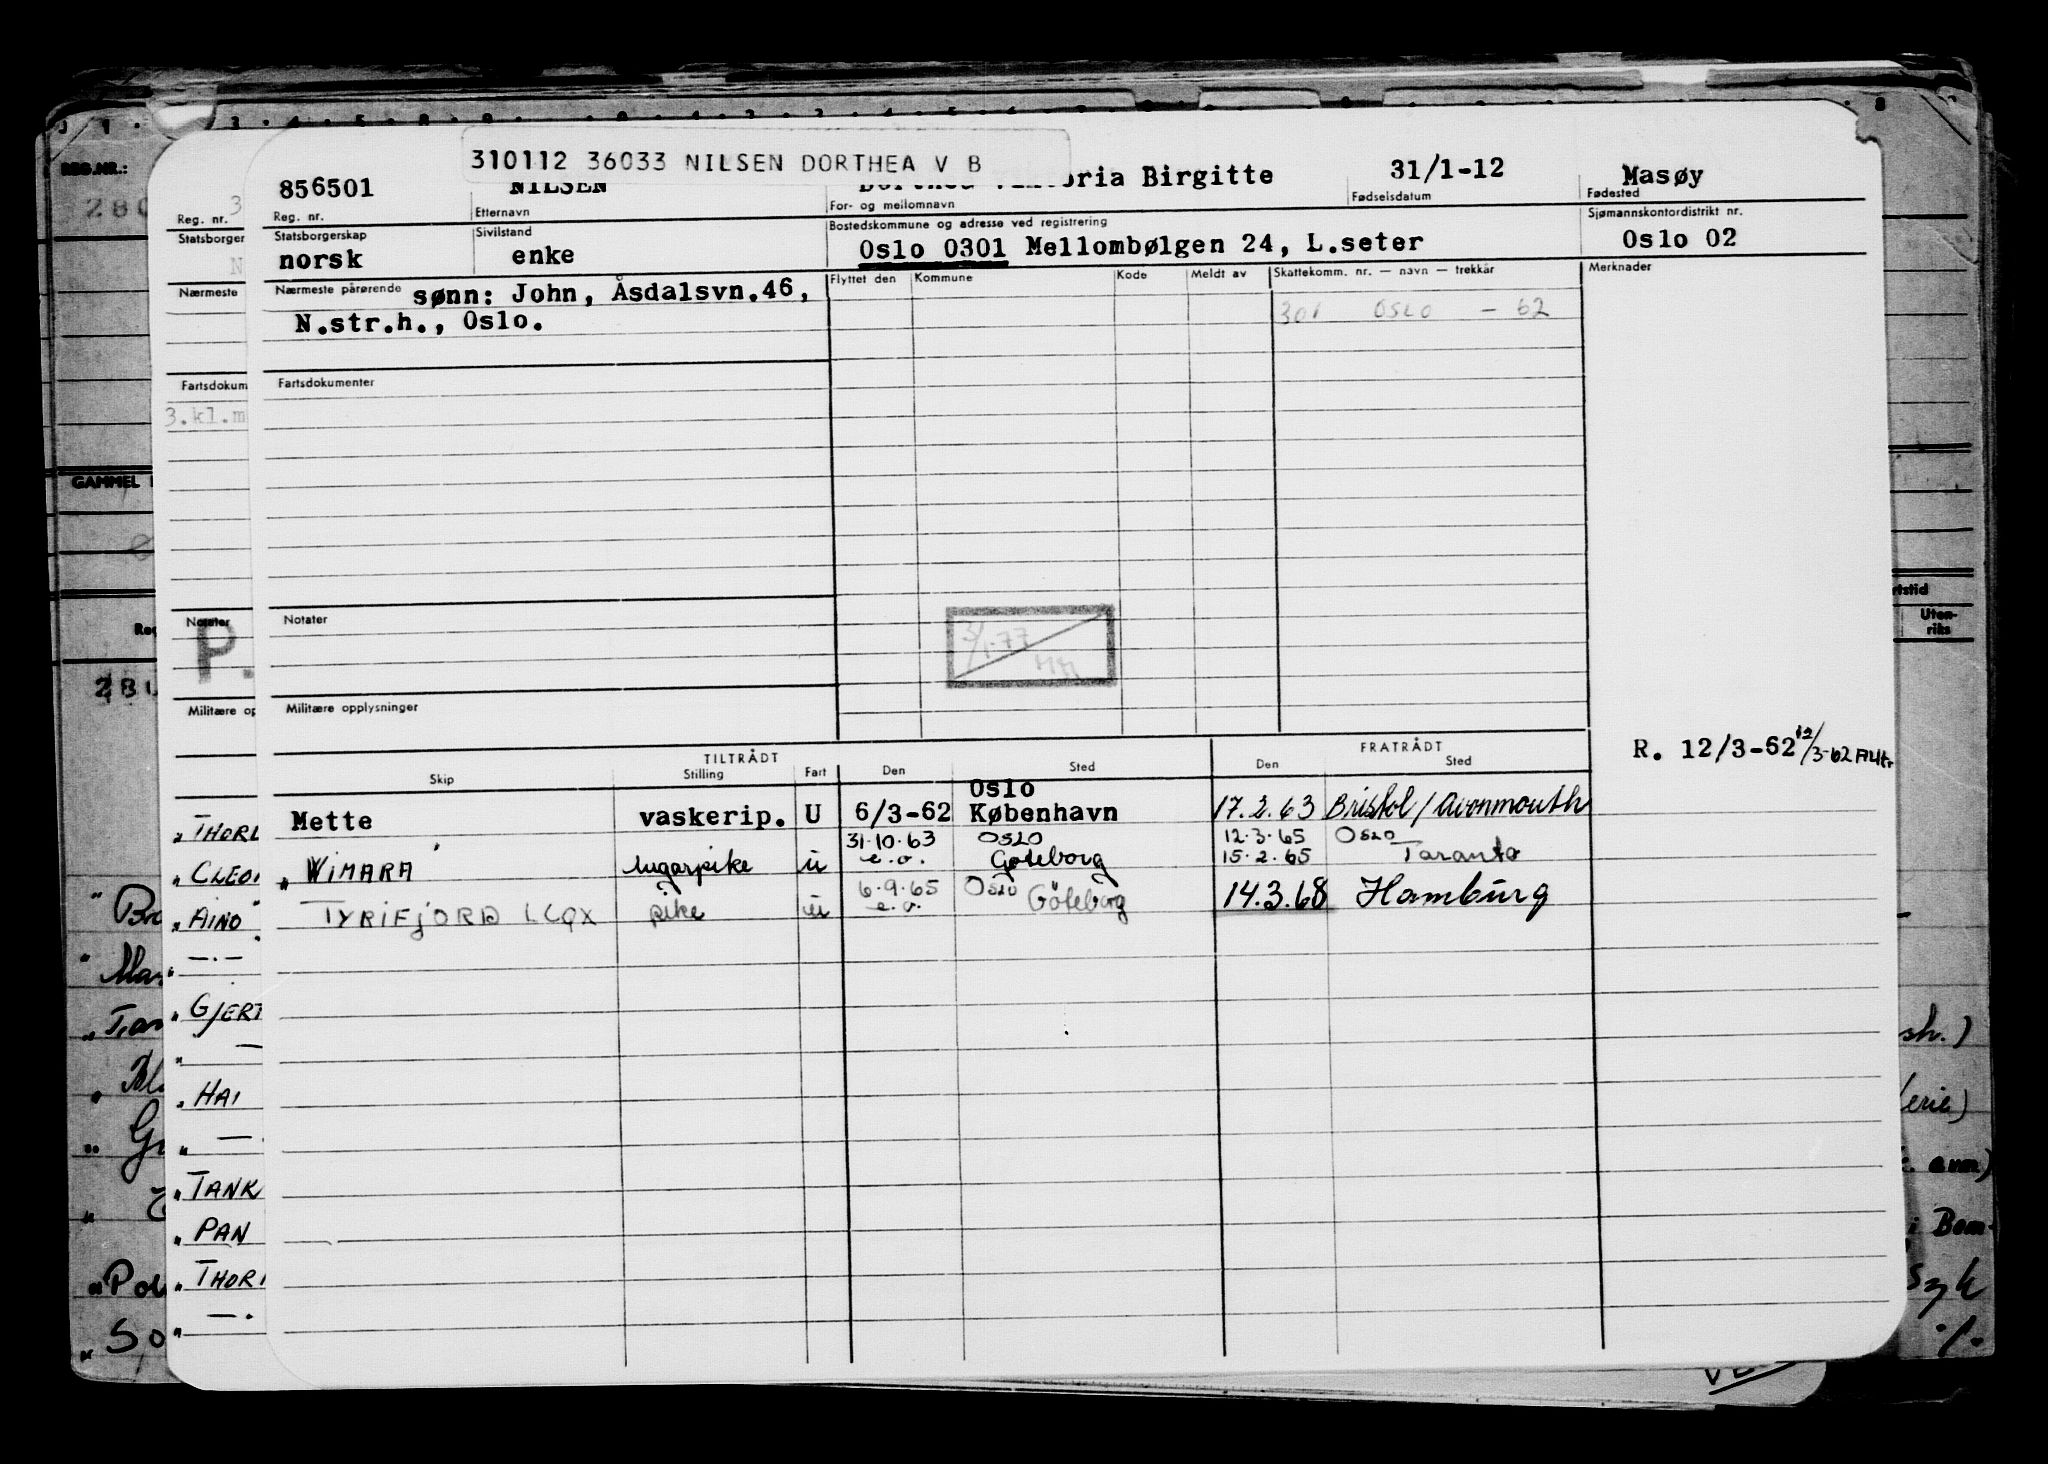 310112 36033 NILSEN DORTHEA V B
856501 NILSEN Dorthea Viktoria Birgitte 31/1-12 Masøy
Reg. nr. Etternavn For- og mellomnavn Fødselsdatum Fødested
Statsborgerskap Sivilstand Bostedskommune og adresse ved registrering Sjømannskontordistrikt nr.
norsk enke Oslo 0301 Mellombølgen 24, L.seter Oslo 02
Nærmeste pårørende sønn: John, Åsdalsvn.46, Flyttet den Kommune Kode Meldt av Skattekomm. nr. — navn — trekkår Merknader
N.str.h., Oslo. 301 OSLO - 62
Fartsdokumenter
Notater
3/1-77
Militære opplysninger
TILTRÅDT FRATRÅDT
R. 12/3-62 12/3-62
Skip Stilling Fart Den Sted Den Sted
Oslo
Mette vaskerip. U 6/3-62 København 17.2.63 Bristol/Avonmouth
31.10.63 OSLO 12.3.65 OSLO
" WIMARA lugarpike u e.o. Göteborg 15.2.65 Taranto
6.9.65 Oslo
TYRIFJORD LCQX pike u e.o. Göteborg 14.3.68 Hamburg
REG.NR.:
Reg. nr. 3
Statsborger
N
Nærmeste
Fartsdokum
3.kl.m
GAMMEL
Notater
P.
Militære op
" THORL
" CLEO
" AINO
" GJERT
" HAI
" TANK
" PAN
" THOR
280
Reg
rtstid
Uten-
riks
sh.)
erie)
i Bom-